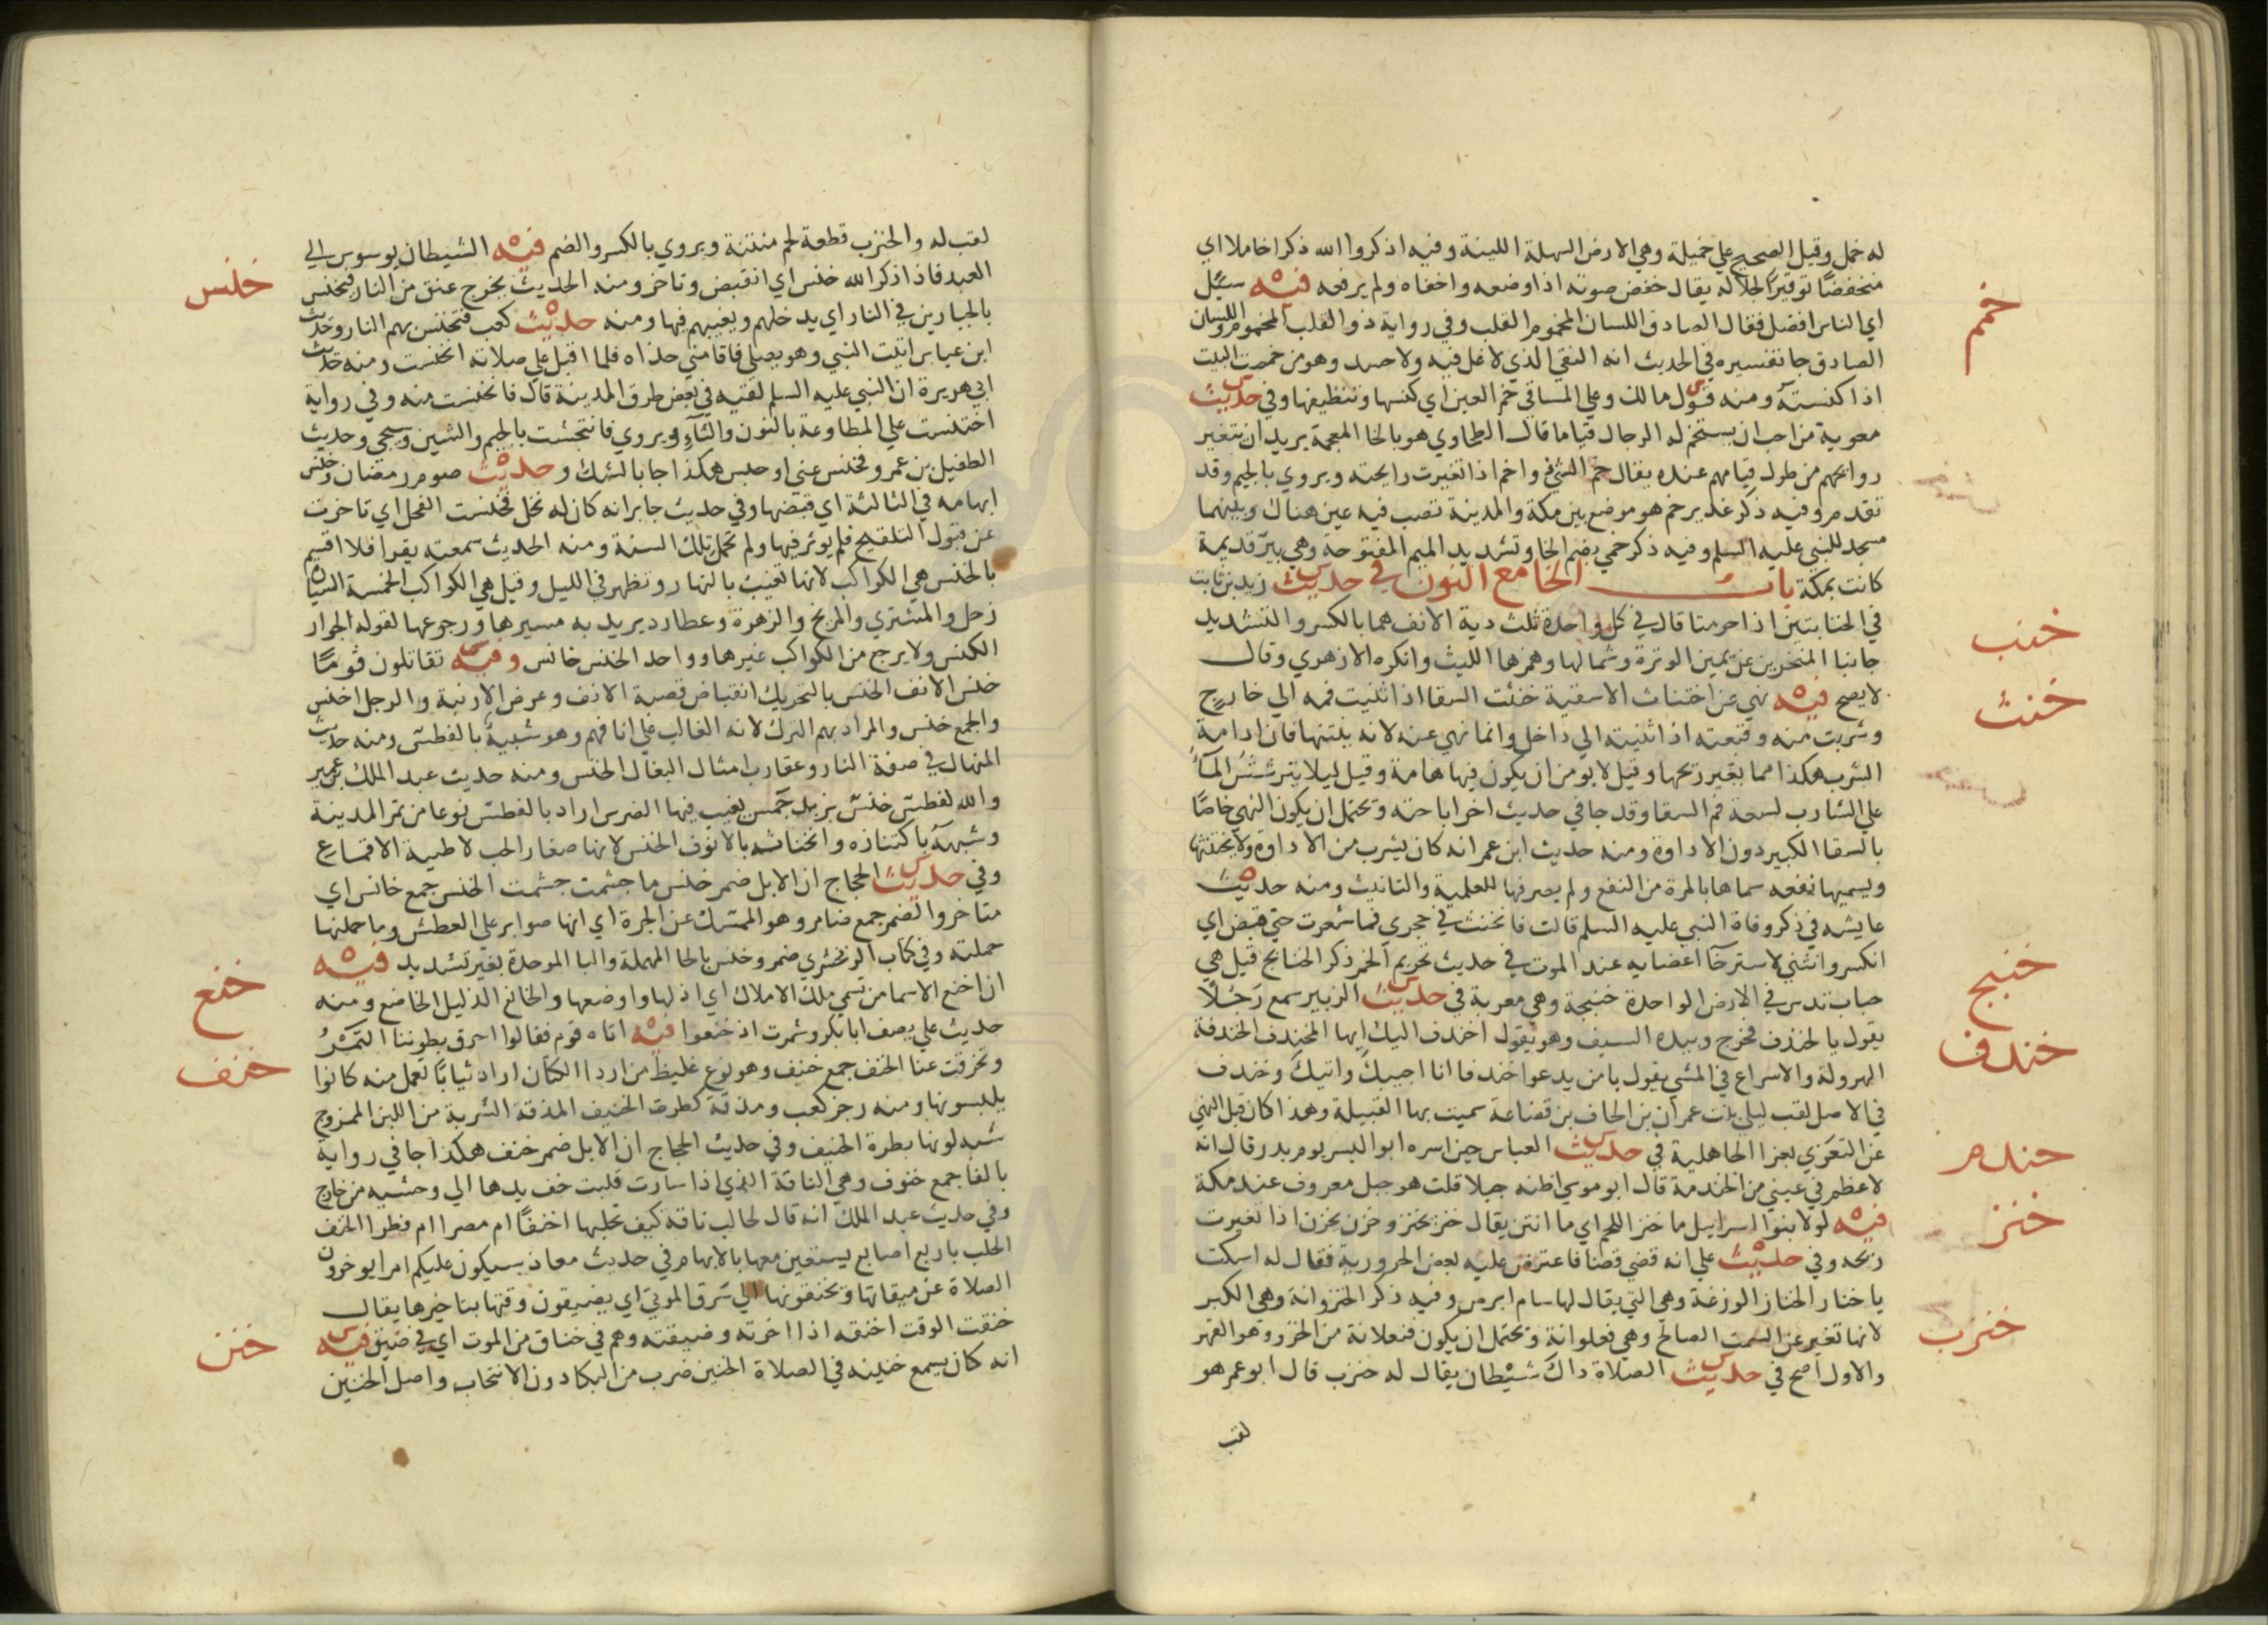 له خمل وقيل الصحيح علي خميلة وهي الارض السهلة اللينة وفيه اذكروا الله ذكرا خاملا اي
خمم
منخفضًا توقيرًا لجلاله يقال خفض صوته اذا وضعه واخفاه ولم يرفعه فيه سيل
اي الناس افضل فقال الصادق اللسان المخموم القلب وفي رواية ذو القلب المخموم واللسان
الصادق جا تفسيره في الحديث انه النقي الذي لا غل فيه ولا حسد وهو من خممت البيت
اذا كنسته ومنه قول مالك وعلي المساقي خم العين اي كنسها وتنظيفها وفي حديث
معوية من احب ان يستخم له الرجال قياما قال الطحاوي هو بالخا المعجمة يريد ان تتغير
روايحهم من طول قيامهم عنده يقال خم الشي واخم اذا تغيرت رايحته ويروي بالجيم وقد
تقدم وفيه ذكر غدير خم هو موضع بين مكة والمدينة تصب فيه عين هناك وبينهما
مسجد للنبي عليه السلم وفيه ذكر خمي بضم الخا وتشديد الميم المفتوحة وهي بير قديمة
كانت بمكة باب الخا مع النون في حديث زيد بن ثابت
خنب
في الخنابتين اذا خرمتا قال في كل واحدة ثلث دية الانف هما بالكسر والتشديد
جانبا المنخرين عن يمين الوترة وشمالها وهمزها الليث وانكره الازهري وقال
خنث
لا يصح فيه نهي عن اختناث الاسقية خنثت السقا اذا ثنيت فمه الي خارج
وشربت منه وقبعته اذا ثنيته الي داخل وانما نهي عنه لانه ينتنها فان ادامة
الشرب هكذا مما يغير ريحها وقيل لا يومن ان يكون فيها هامة وقيل ليلا يترشش الماء
علي الشارب لسعة فم السقا وقد جا في حديث اخر اباحته ويحتمل ان يكون النهي خاصًا
بالسقا الكبير دون الاداوة ومنه حديث ابن عمر انه كان يشرب من الاداوة ولا يختنثها
ويسميها نفعه سماها بالمرة من النفع ولم يصرفها للعلمية والتانيث ومنه حديث
عايشه في ذكر وفاة النبي عليه السلم قالت فانخنث في حجري فما شعرت حتي قبض اي
خنبج
انكسر وانثني لاسترخا اعضايه عند الموت في حديث تحريم الخمر ذكر الخنابج قيل هي
حباب تدس في الارض الواحدة خنبجة وهي معربة في حديث الزبير سمع رجلًا
خندف
يقول يا لخندف فخرج وبيده السيف وهو يقول اخندف اليك ايها المخندف الخندفة
الهرولة والاسراع في المشي يقول يا من يدعوا خندفا انا اجيبك واتيك وخندف
في الاصل لقب ليلي بنت عمران بن الحاف بن قضاعة سميت بها القبيلة وهذا كان قبل النهي
خندم
عن التعزي بعزا الجاهلية في حديث العباس حين اسره ابو اليسر يوم بدر قال انه
لاعظم في عيني من الخندمة قال ابو موسي اظنه جبلا قلت هو جبل معروف عند مكة
خنز
فيه لولا بنوا اسراييل ما خنز اللحم اي ما انتن يقال خنز يخنز وخزن يخزن اذا تغيرت
ريحه وفي حديث علي انه قضي قضا فاعترض عليه بعض الحرورية فقال له اسكت
يا خناز الخناز الوزغة وهي التي يقال لها سام ابرص وفيه ذكر الخنزوانة وهي الكبر
خنزب
لانها تغير عن السمت الصالح وهي فعلوانة ويحتمل ان يكون فنعلانة من الخزر وهو القهر
والاول اصح في حديث الصلاة داك شيطان يقال له خنزب قال ابو عمر هو
لقب
لقب له والخنزب قطعة لحم منتنة ويروي بالكسر والضم فيه الشيطان يوسوس الي
خنس
العبد فاذا ذكر الله خنس اي انقبض وتاخر ومنه الحديث يخرج عنق من النار فتخنس
بالجبارين في النار اي يدخلهم ويغيبهم فيها ومنه حديث كعب فتخنس بهم النار وحديث
ابن عباس اتيت النبي وهو يصلي فاقامني حذاه فلما اقبل علي صلاته انخنست ومنه حديث
ابي هريرة ان النبي عليه السلم لقيه في بعض طرق المدينة قال فانخنست منه وفي رواية
اختنست علي المطاوعة بالنون والتاء ويروي فانتجشت بالجيم والشين وسيجي وحديث
الطفيل بن عمرو فخنس عني او حبس هكذا جا بالشك وحديث صوم رمضان وخنس
ابهامه في الثالثة اي قبضها وفي حديث جابر انه كان له نخل فخنست النخل اي تاخرت
عن قبول التلقيح فلم يوثر فيها ولم تحمل تلك السنة ومنه الحديث سمعته يقرا فلا اقسم
بالخنس هي الكواكب لانها تغيب بالنهار وتظهر في الليل وقيل هي الكواكب الخمسة السيارة
زحل والمشتري والمريخ والزهرة وعطارد يريد به مسيرها ورجوعها لقوله الجوار
الكنس ولا يرجع من الكواكب غيرها وواحد الخنس خانس وفيه تقاتلون قومًا
خنس الانف الخنس بالتحريك انقباض قصبة الانف وعرض الارنبة والرجل اخنس
والجمع خنس والمراد بهم الترك لانه الغالب علي انافهم وهو شبيه بالفطس ومنه حديث
المنهال في صفة النار وعقارب امثال البغال الخنس ومنه حديث عبد الملك بن عمير
والله لفطس خنس بزبد جمس يغيب فيها الضرس اراد بالفطس نوعا من تمر المدينة
وشبهه باكتنازه وانحنائه بالانوف الخنس لانها صغار الحب لاطية الاقماع
وفي حديث الحجاج ان الابل ضمر خنس ما جشمت جشمت الخنس جمع خانس اي
متاخر والضمر جمع ضامر وهو الممسك عن الجرة اي انها صوابر علي العطش وما حملتها
حملته وفي كتاب الزمخشري ضمر وخنس بالحا المهملة والبا الموحدة بغير تشديد فيه
خنع
ان اخنع الاسما من تسمي ملك الاملاك اي اذلها واوضعها والخانع الذليل الخاضع ومنه
حديث علي يصف ابا بكر وشمرت اذ خنعوا فيه اتاه قوم فقالوا احرق بطوننا التمر
خنف
وتخرقت عنا الخنف جمع خنيف وهو نوع غليظ من اردا الكتان اراد ثيابًا تعمل منه كانوا
يلبسونها ومنه رجز كعب ومذقة كطرت الخنيف المذقة الشربة من اللبن الممزوج
شبه لونها بطرة الخنيف وفي حديث الحجاج ان الابل ضمر خنف هكذا جا في رواية
بالفا جمع خنوف وهي الناقة الذي اذا سارت قلبت خف يدها الي وحشيه من خارج
وفي حديث عبد الملك انه قال لحالب ناقه كيف تحلبها اخنفًا ام مصرا ام فطرا الخنف
الحلب باربع اصابع يستعين معها بالابهام في حديث معاذ سيكون عليكم امرا يوخرون
الصلاة عن ميقاتها ويخنقونها الي شرق الموتي اي يضيقون وقتها بتاخيرها يقال
خنن
خنقت الوقت اخنقه اذا اخرته وضيقته وهم في خناق من الموت اي في ضيق فيه
انه كان يسمع خنينه في الصلاة الخنين ضرب من البكا دون الانتحاب واصل الخنين